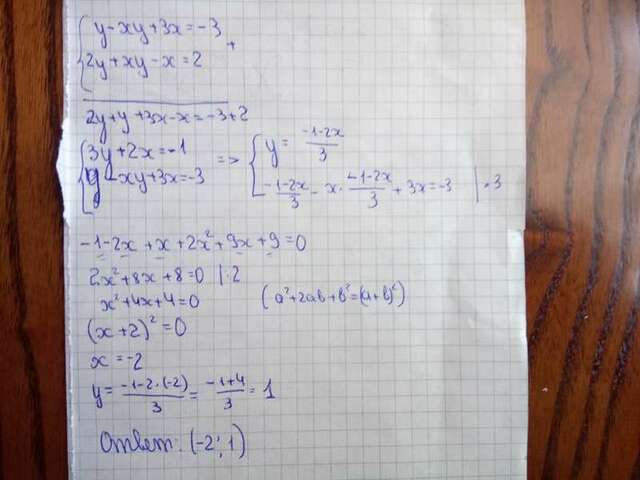 { y-xy+3x=-3
2y+xy-x=2 +
2y+y+3x-x=-3+2
{ 3y+2x=-1 => { y = (-1-2x)/3
y-xy+3x=-3 (-1-2x)/3 - x·(-1-2x)/3 + 3x=-3 |·3
-1-2x+x+2x²+9x+9=0
2x²+8x+8=0 |:2
x²+4x+4=0 (a²+2ab+b²=(a+b)²)
(x+2)²=0
x=-2
y=(-1-2·(-2))/3=(-1+4)/3=1
Ответ: (-2; 1)